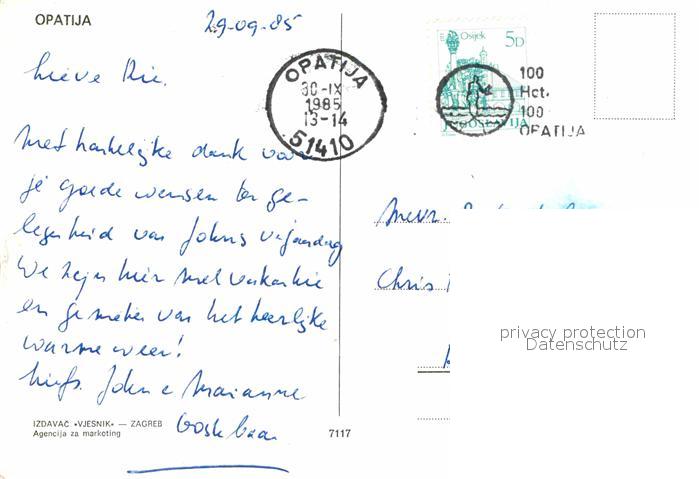 OPATIJA
29-09-85
Lieve Rie.
Met hartelijke dank voor
je goede wensen ter ge-
legenheid van Johns verjaardag
We zijn hier met vakantie
en genieten van het heerlijke
warme weer!
Liefs. John e Marianne
IZDAVAČ »VJESNIK« — ZAGREB
Agencija za marketing
7117
OPATIJA
30-IX
1985
13-14
51410
Osijek 5D
JUGOSLAVIJA
100
Hct.
100
OPATIJA
Mevr.
Chris
privacy protection
Datenschutz